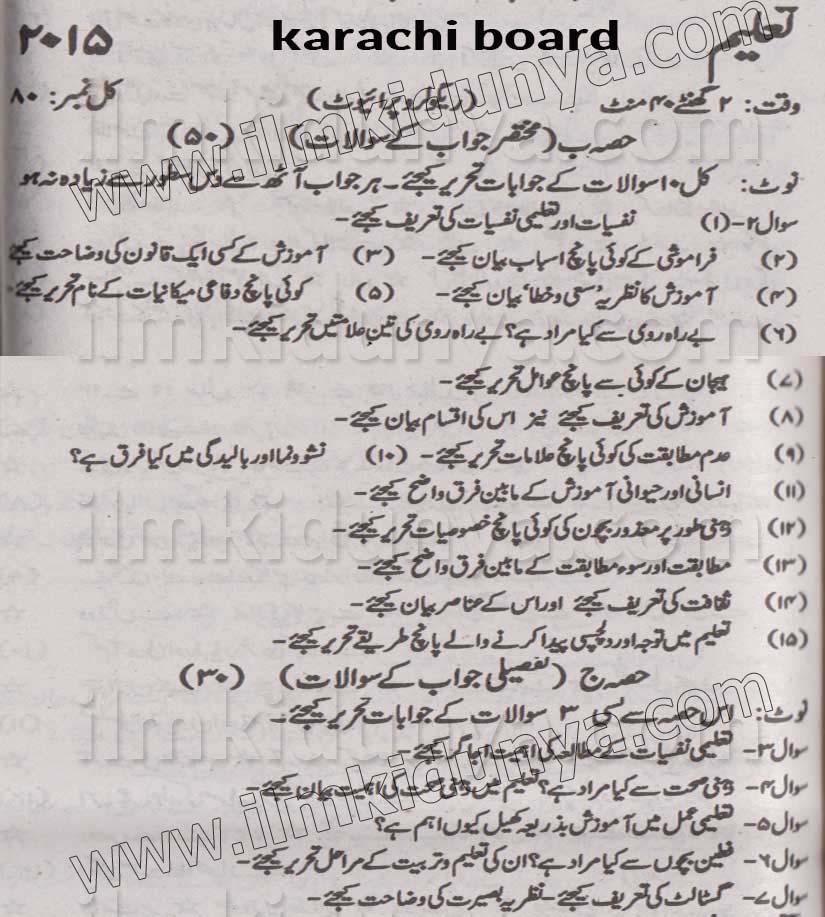 karachi board
تعلیم ۲۰۱۵
وقت: ۲ گھنٹے ۴۰ منٹ (ریگولر و پرائیوٹ) کل نمبر: ۸۰
حصہ ب (مختصر جواب کے سوالات) (۵۰)
نوٹ: کل ۱۰ سوالات کے جوابات تحریر کیجئے۔ ہر جواب آٹھ سے دس سطور سے زیادہ نہ ہو
سوال ۲- (۱) نفسیات اور تعلیمی نفسیات کی تعریف کیجئے۔
(۲) فراموشی کے کوئی پانچ اسباب بیان کیجئے۔ (۳) آموزش کے کسی ایک قانون کی وضاحت کیجئے
(۴) آموزش کا نظریہ 'سعی و خطا' بیان کیجئے۔ (۵) کوئی پانچ دفاعی میکانیات کے نام تحریر کیجئے۔
(۶) بے راہ روی سے کیا مراد ہے؟ بے راہ روی کی تین علامتیں تحریر کیجئے۔
(۷) ہیجان کے کوئی سے پانچ عوامل تحریر کیجئے۔
(۸) آموزش کی تعریف کیجئے نیز اس کی اقسام بیان کیجئے۔
(۹) عدم مطابقت کی کوئی پانچ علامات تحریر کیجئے۔ (۱۰) نشوونما اور بالیدگی میں کیا فرق ہے؟
(۱۱) انسانی اور حیوانی آموزش کے مابین فرق واضح کیجئے۔
(۱۲) ذہنی طور پر معذور بچوں کی کوئی پانچ خصوصیات تحریر کیجئے۔
(۱۳) مطابقت اور سوء مطابقت کے مابین فرق واضح کیجئے۔
(۱۴) ثقافت کی تعریف کیجئے اور اس کے عناصر بیان کیجئے۔
(۱۵) تعلیم میں توجہ اور دلچسپی پیدا کرنے والے پانچ طریقے تحریر کیجئے۔
حصہ ج (تفصیلی جواب کے سوالات) (۳۰)
نوٹ: اس حصہ سے کسی ۳ سوالات کے جوابات تحریر کیجئے۔
سوال ۳- تعلیمی نفسیات کے مطالعہ کی اہمیت اجاگر کیجئے۔
سوال ۴- ذہنی صحت سے کیا مراد ہے؟ تعلیم میں ذہنی صحت کی اہمیت بیان کیجئے۔
سوال ۵- تعلیمی عمل میں آموزش بذریعہ کھیل کیوں اہم ہے؟
سوال ۶- فطین بچوں سے کیا مراد ہے؟ ان کی تعلیم و تربیت کے مراحل تحریر کیجئے۔
سوال ۷- گسٹالٹ کی تعریف کیجئے۔ نظریہ بصیرت کی وضاحت کیجئے۔
www.ilmkidunya.com
www.ilmkidunya.com
ilmkidunya.com
ilmkidunya.com
ilmkidunya.com
ilmkidunya.com
ilmkidunya.com